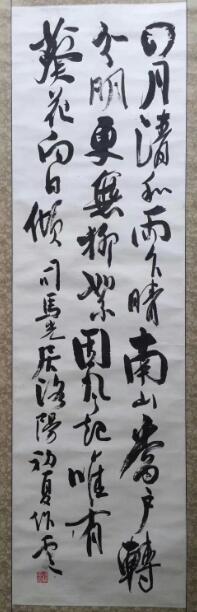 四月清和雨乍晴南山當户轉
分明更無柳絮因風起唯有
葵花向日傾 司馬光居洛陽初夏作